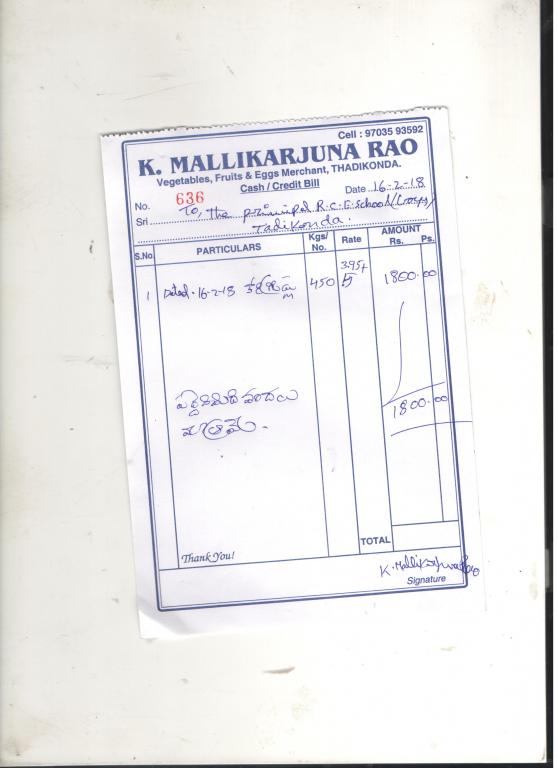 Cell : 97035 93592
K. MALLIKARJUNA RAO
Vegetables, Fruits & Eggs Merchant, THADIKONDA.
Cash / Credit Bill
No. 636 Date 16-2-18
Sri To, the principal R.C.E. School
Tadikonda.
S.No. PARTICULARS Kgs/ No. Rate AMOUNT Rs. Ps.
1 Dated. 16-2-18 450 3.95+ 1800.00
1800.00
మాత్రమే.
TOTAL
Thank You!
K. Mallikarjuna Rao
Signature